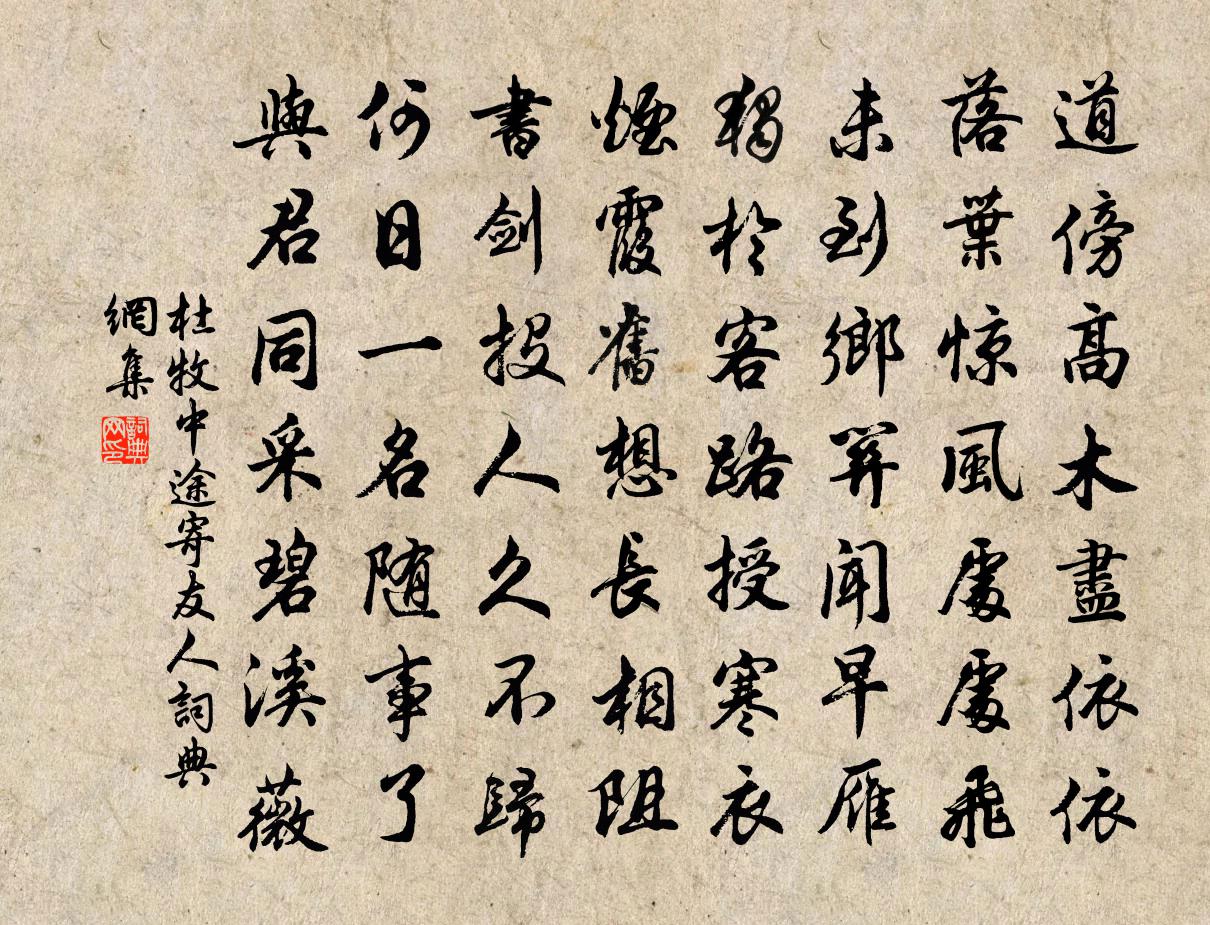 道傍高木盡依依
落葉惊風處處飛
未到鄉關聞早雁
獨於客路授寒衣
煙霞舊想長相阻
書劍投人久不歸
何日一名隨事了
與君同采碧溪薇
杜牧中途寄友人詞典
網集
詞典網印